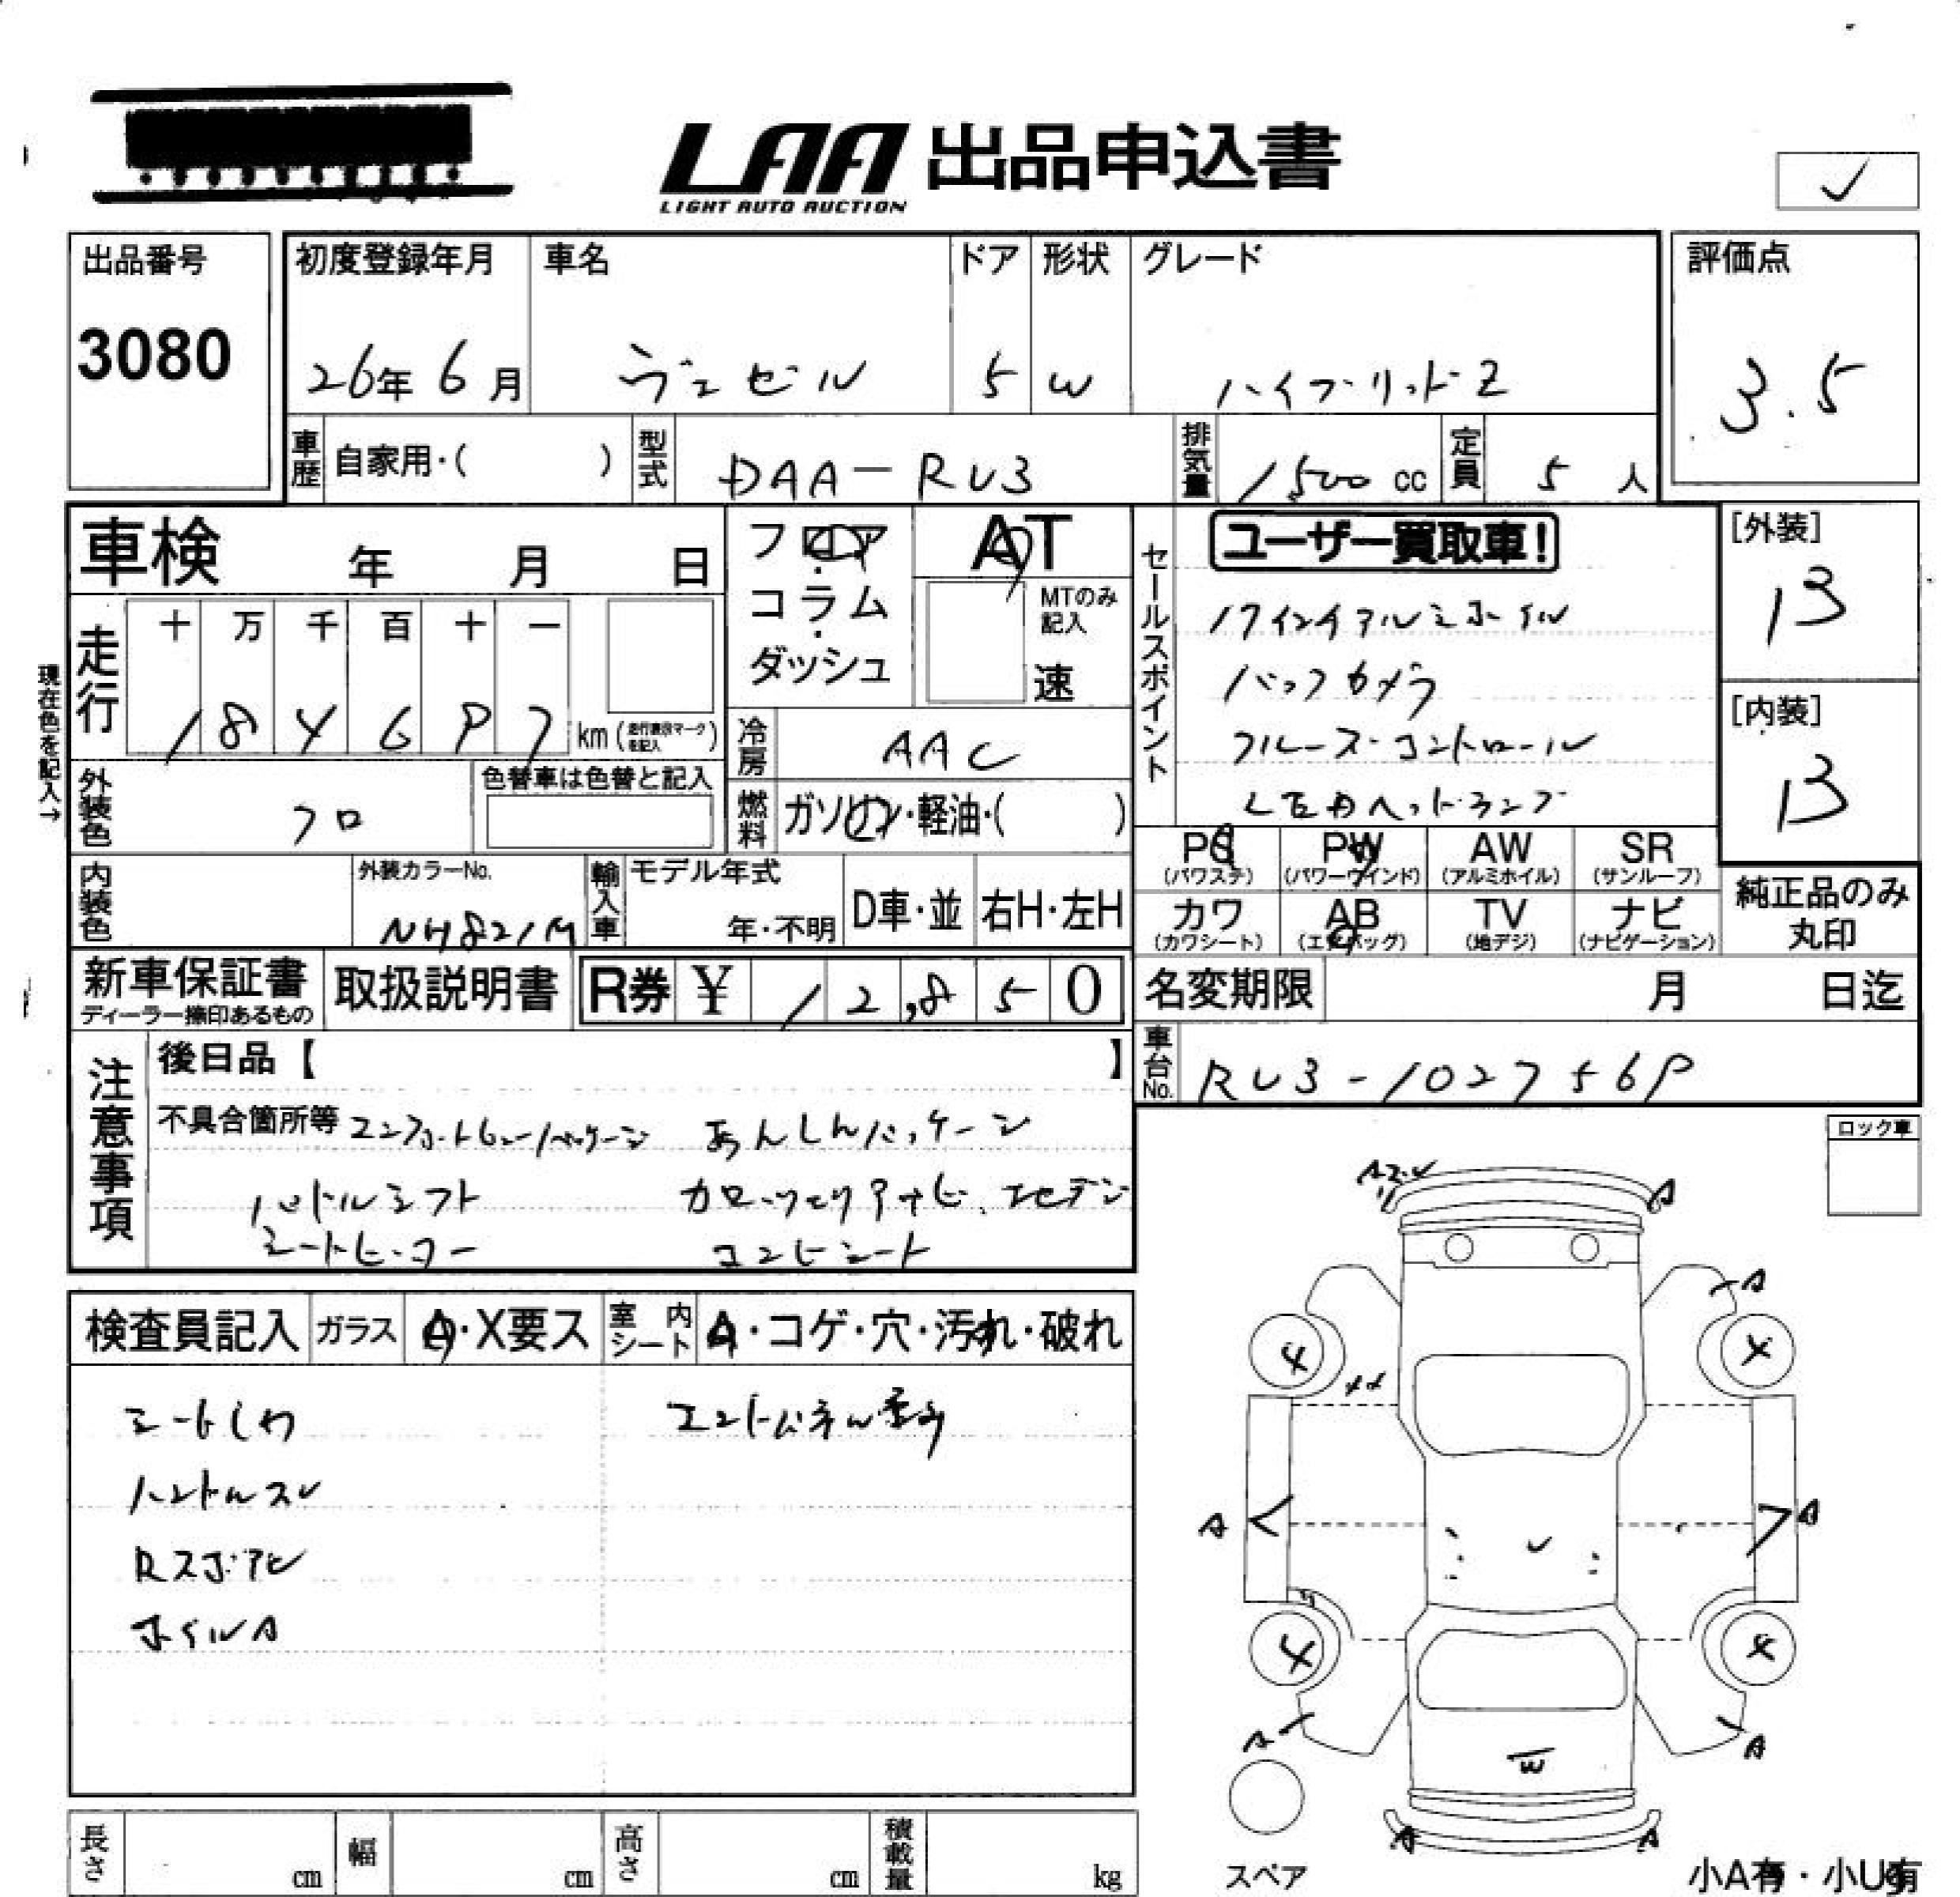 LAA 出品申込書
LIGHT AUTO AUCTION
✓
出品番号
3080
初度登録年月
26年 6月
車名
ヴェゼル
ドア
5
形状
W
グレード
ハイブリッドZ
評価点
3.5
車歴 自家用・( )
型式 DAA-RU3
排気量 1500 cc
定員 5 人
車検 年 月 日
フロア・コラム・ダッシュ
AT
MTのみ記入
速
セールスポイント
ユーザー買取車!
17インチアルミホイル
バックカメラ
クルーズ・コントロール
LEDヘッドランプ
[外装]
B
[内装]
B
現在色を記入→
走行
十 万 千 百 十 一
km
冷房 AAC
燃料 ガソリン・軽油・( )
外装色 クロ
色替車は色替と記入
内装色
外装カラーNo.
NH821M
輸入車 モデル年式
年・不明
D車・並
右H・左H
PS (パワステ)
PW (パワーウインド)
AW (アルミホイル)
SR (サンルーフ)
カワ (カワシート)
AB (エアバッグ)
TV (地デジ)
ナビ (ナビゲーション)
純正品のみ
丸印
新車保証書
ディーラー捺印あるもの
取扱説明書
R券 ¥ 12,850
名変期限 月 日迄
車台No.
注意事項
後日品【 】
不具合箇所等 コンフォートビューパッケージ あんしんパッケージ
パドルシフト カロッツェリアナビ、フルセグ
シートヒーター コンビシート
ロック車
検査員記入
ガラス A・X要ス
室内シート A・コゲ・穴・汚れ・破れ
シートしわ
ハンドルスレ
Rスポアヒ
ホイルA
A
A
A
A
A
A
A
A
W
4
4
4
4
長さ cm
幅 cm
高さ cm
積載量 kg
スペア
小A有・小U有